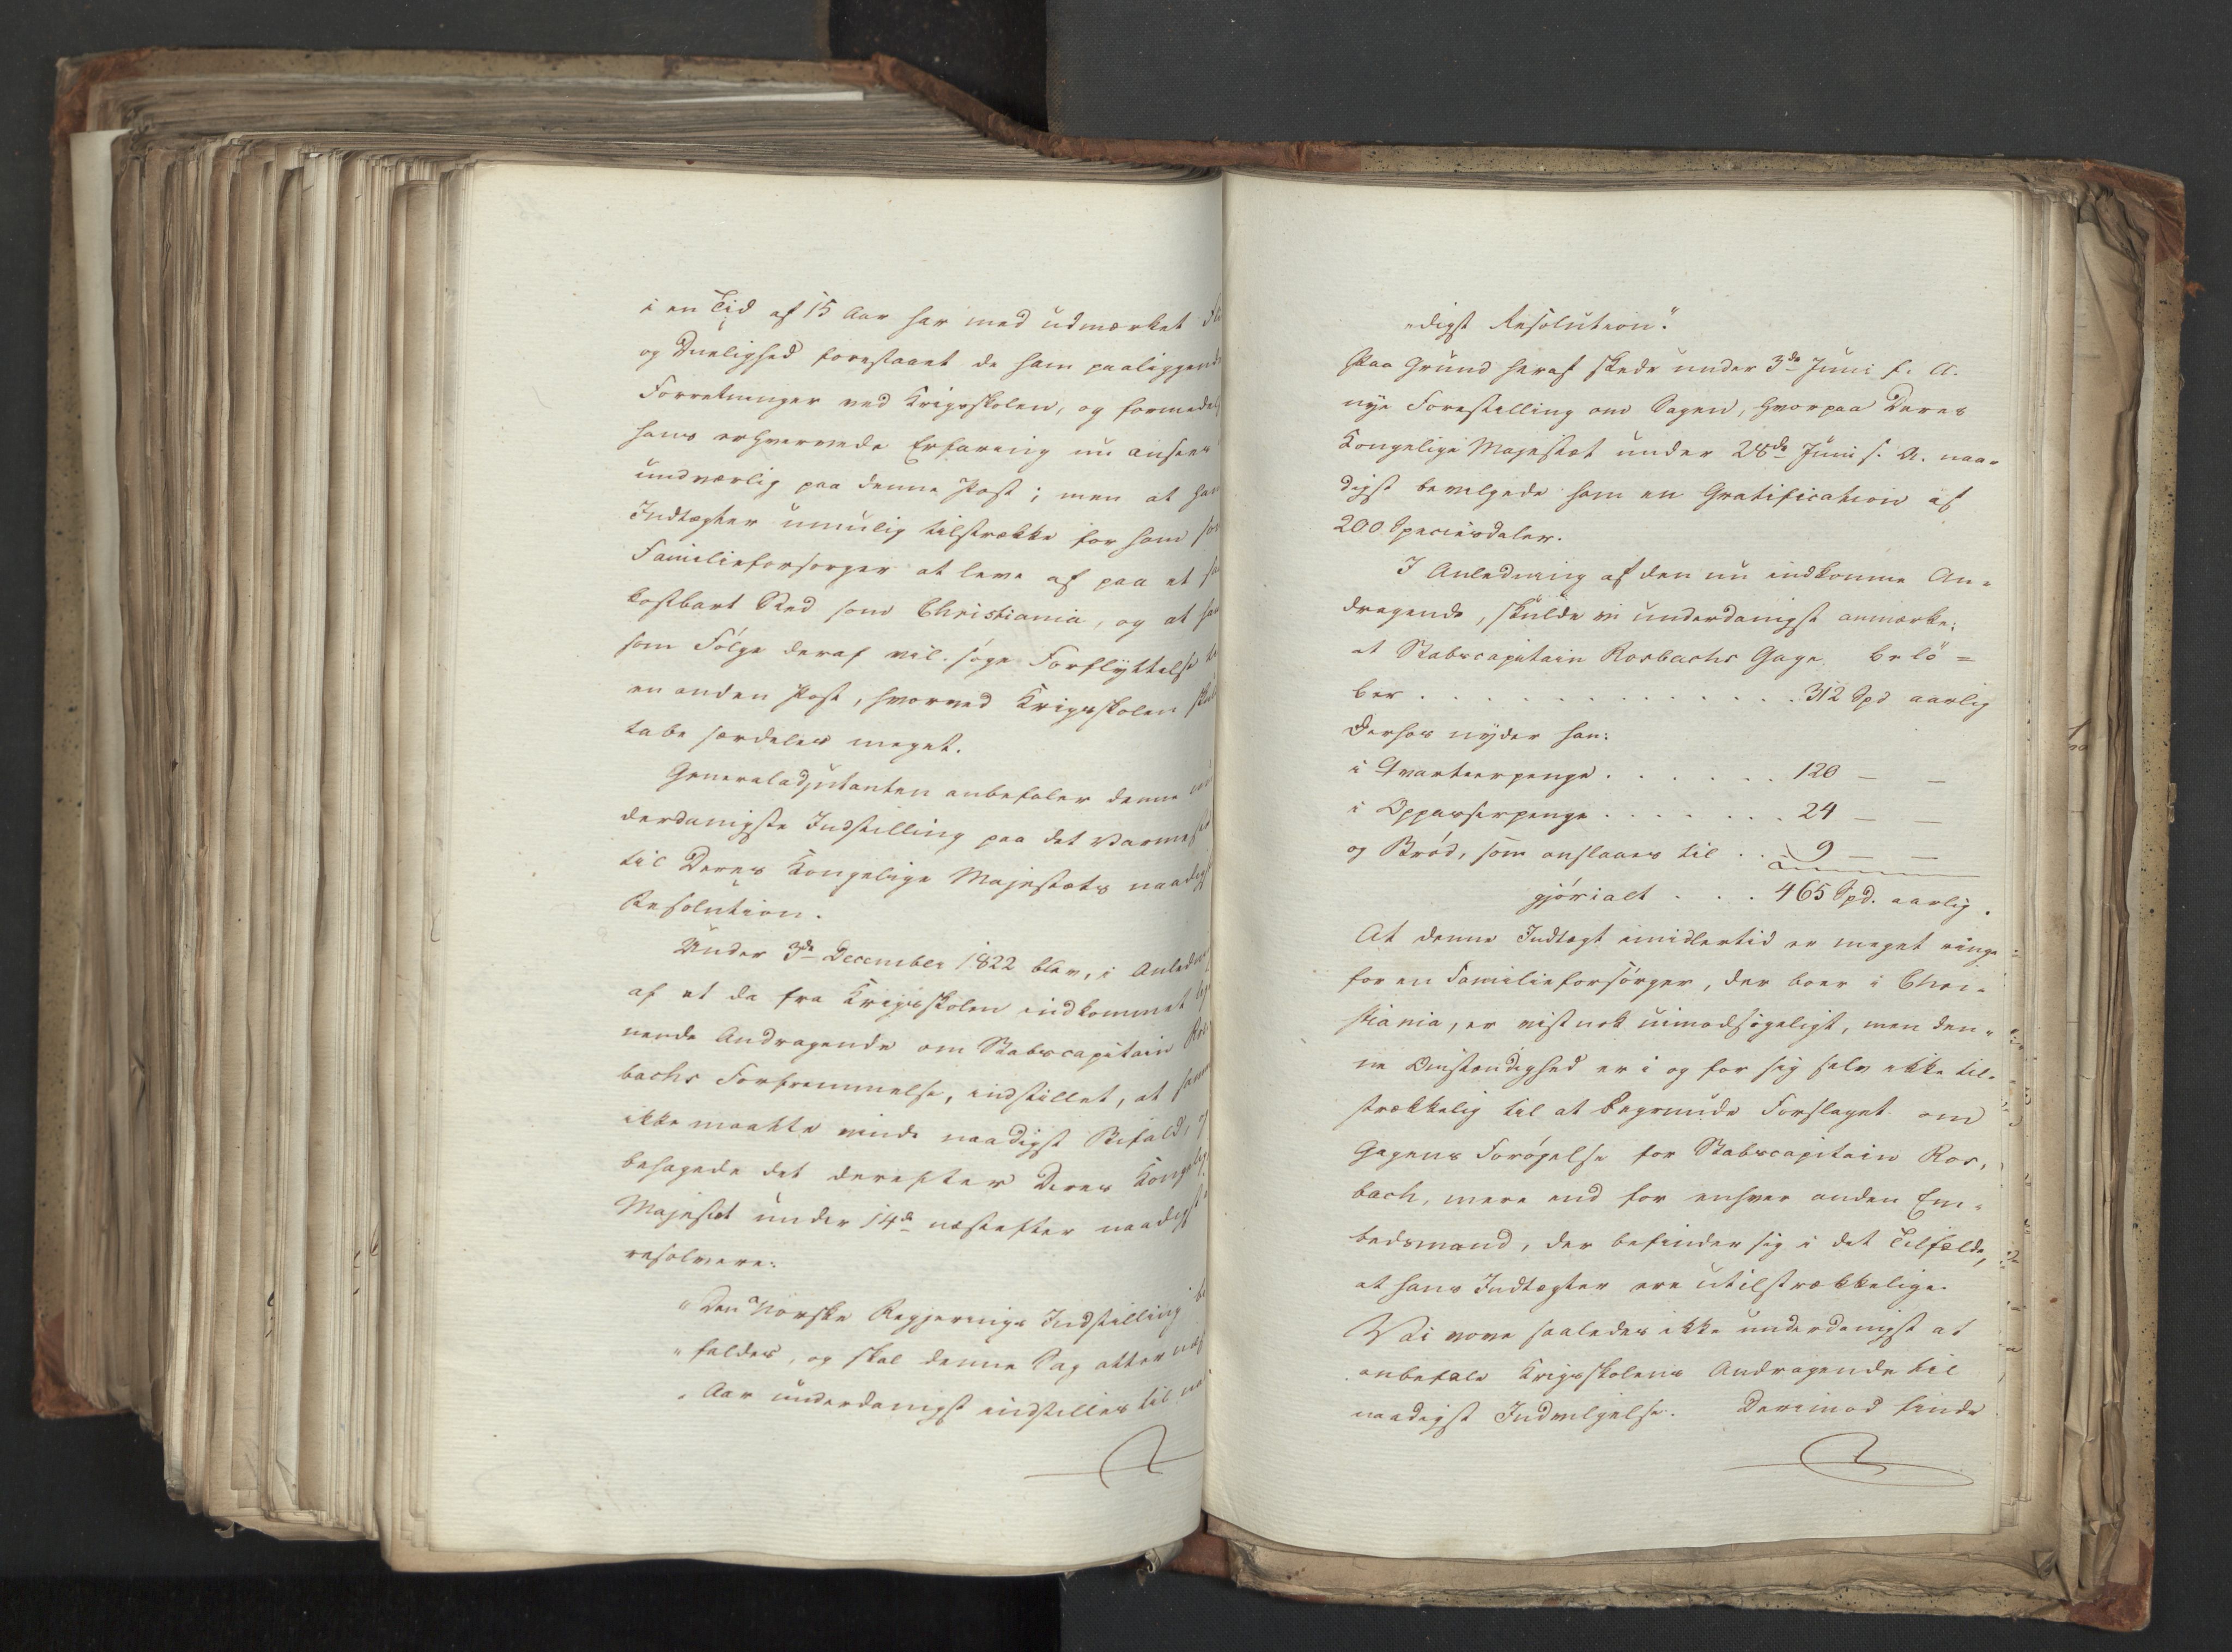 i en Tid af 15 Aar har med udmærket Fli
og Duelighed forestaaet de ham paaliggende
Forretninger ved Krigsskolen, og formedelst
hans erhvervede Erfaring nu ansees
undværlig paa denne Post; men at hans
Indtægter umulig tilstrække for ham som
Familieforsørger at leve af paa et saa
kostbart Sted som Christiania, og at han
som Følge deraf vil søge Forflyttelse til
en anden Post, hvorved Krigsskolen skulde
tabe særdeles meget.
Generaladjutanten anbefaler denne un
derdanigste Indstilling paa det Varmeste
til Deres Kongelige Majestæts naadigst
Resolution.
Under 3de December 1822 blev, i Anledning
af et da fra Krigsskolen indkommet lig
nende Andragende om Stabscapitain Ros
bachs Forfremmelse, indstillet, at samme
ikke maatte vinde naadigst Bifald, og
behagede det derefter Deres Kongelige
Majestæt under 14de næstefter naadigst
resolvere:
"Den Norske Regjerings Indstilling bi
"faldes, og skal denne Sag atter næste
"Aar underdanigst indstilles til naa
"digst Resolution."
Paa Grund heraf skede under 3de Juni f. A.
nye Forestilling om Sagen, hvorpaa Deres
Kongelige Majestæt under 28de Juni s. A. naa-
digst bevilgede ham en Gratification af
200 Speciesdaler.
I Anledning af den nu indkomne An-
dragende, skulde vi underdanigst anmærke:
at Stabscapitain Rosbachs Gage belö=
ber . . . . . . . . . . . . 312 Spd aarlig
Derhos nyder han:
i Qvarteerpenge . . . . . . 120 — —
i Oppasserpenge . . . . . . . 24 — —
og Brød, som anslaaes til . . 9 — —
gjør ialt . . . 465 Spd. aarlig.
At denne Indtægt imidlertid er meget ringe
for en Familieforsørger, der boer i Chri-
stiania, er vistnok uimodsigeligt, men den-
ne Omstændighed er i og for sig selv ikke til-
strækkelig til at begrunde Forslaget om
Gagens Forøgelse for Stabscapitain Ros-
bach, mere end for enhver anden Em-
bedsmand, der befinder sig i det Tilfælde,
at hans Indtægter ere utilstrækkelige.
Vi vove saaledes ikke underdanigst at
anbefale Krigsskolens Andragende til
naadigst Indvilgelse. Derimod finde